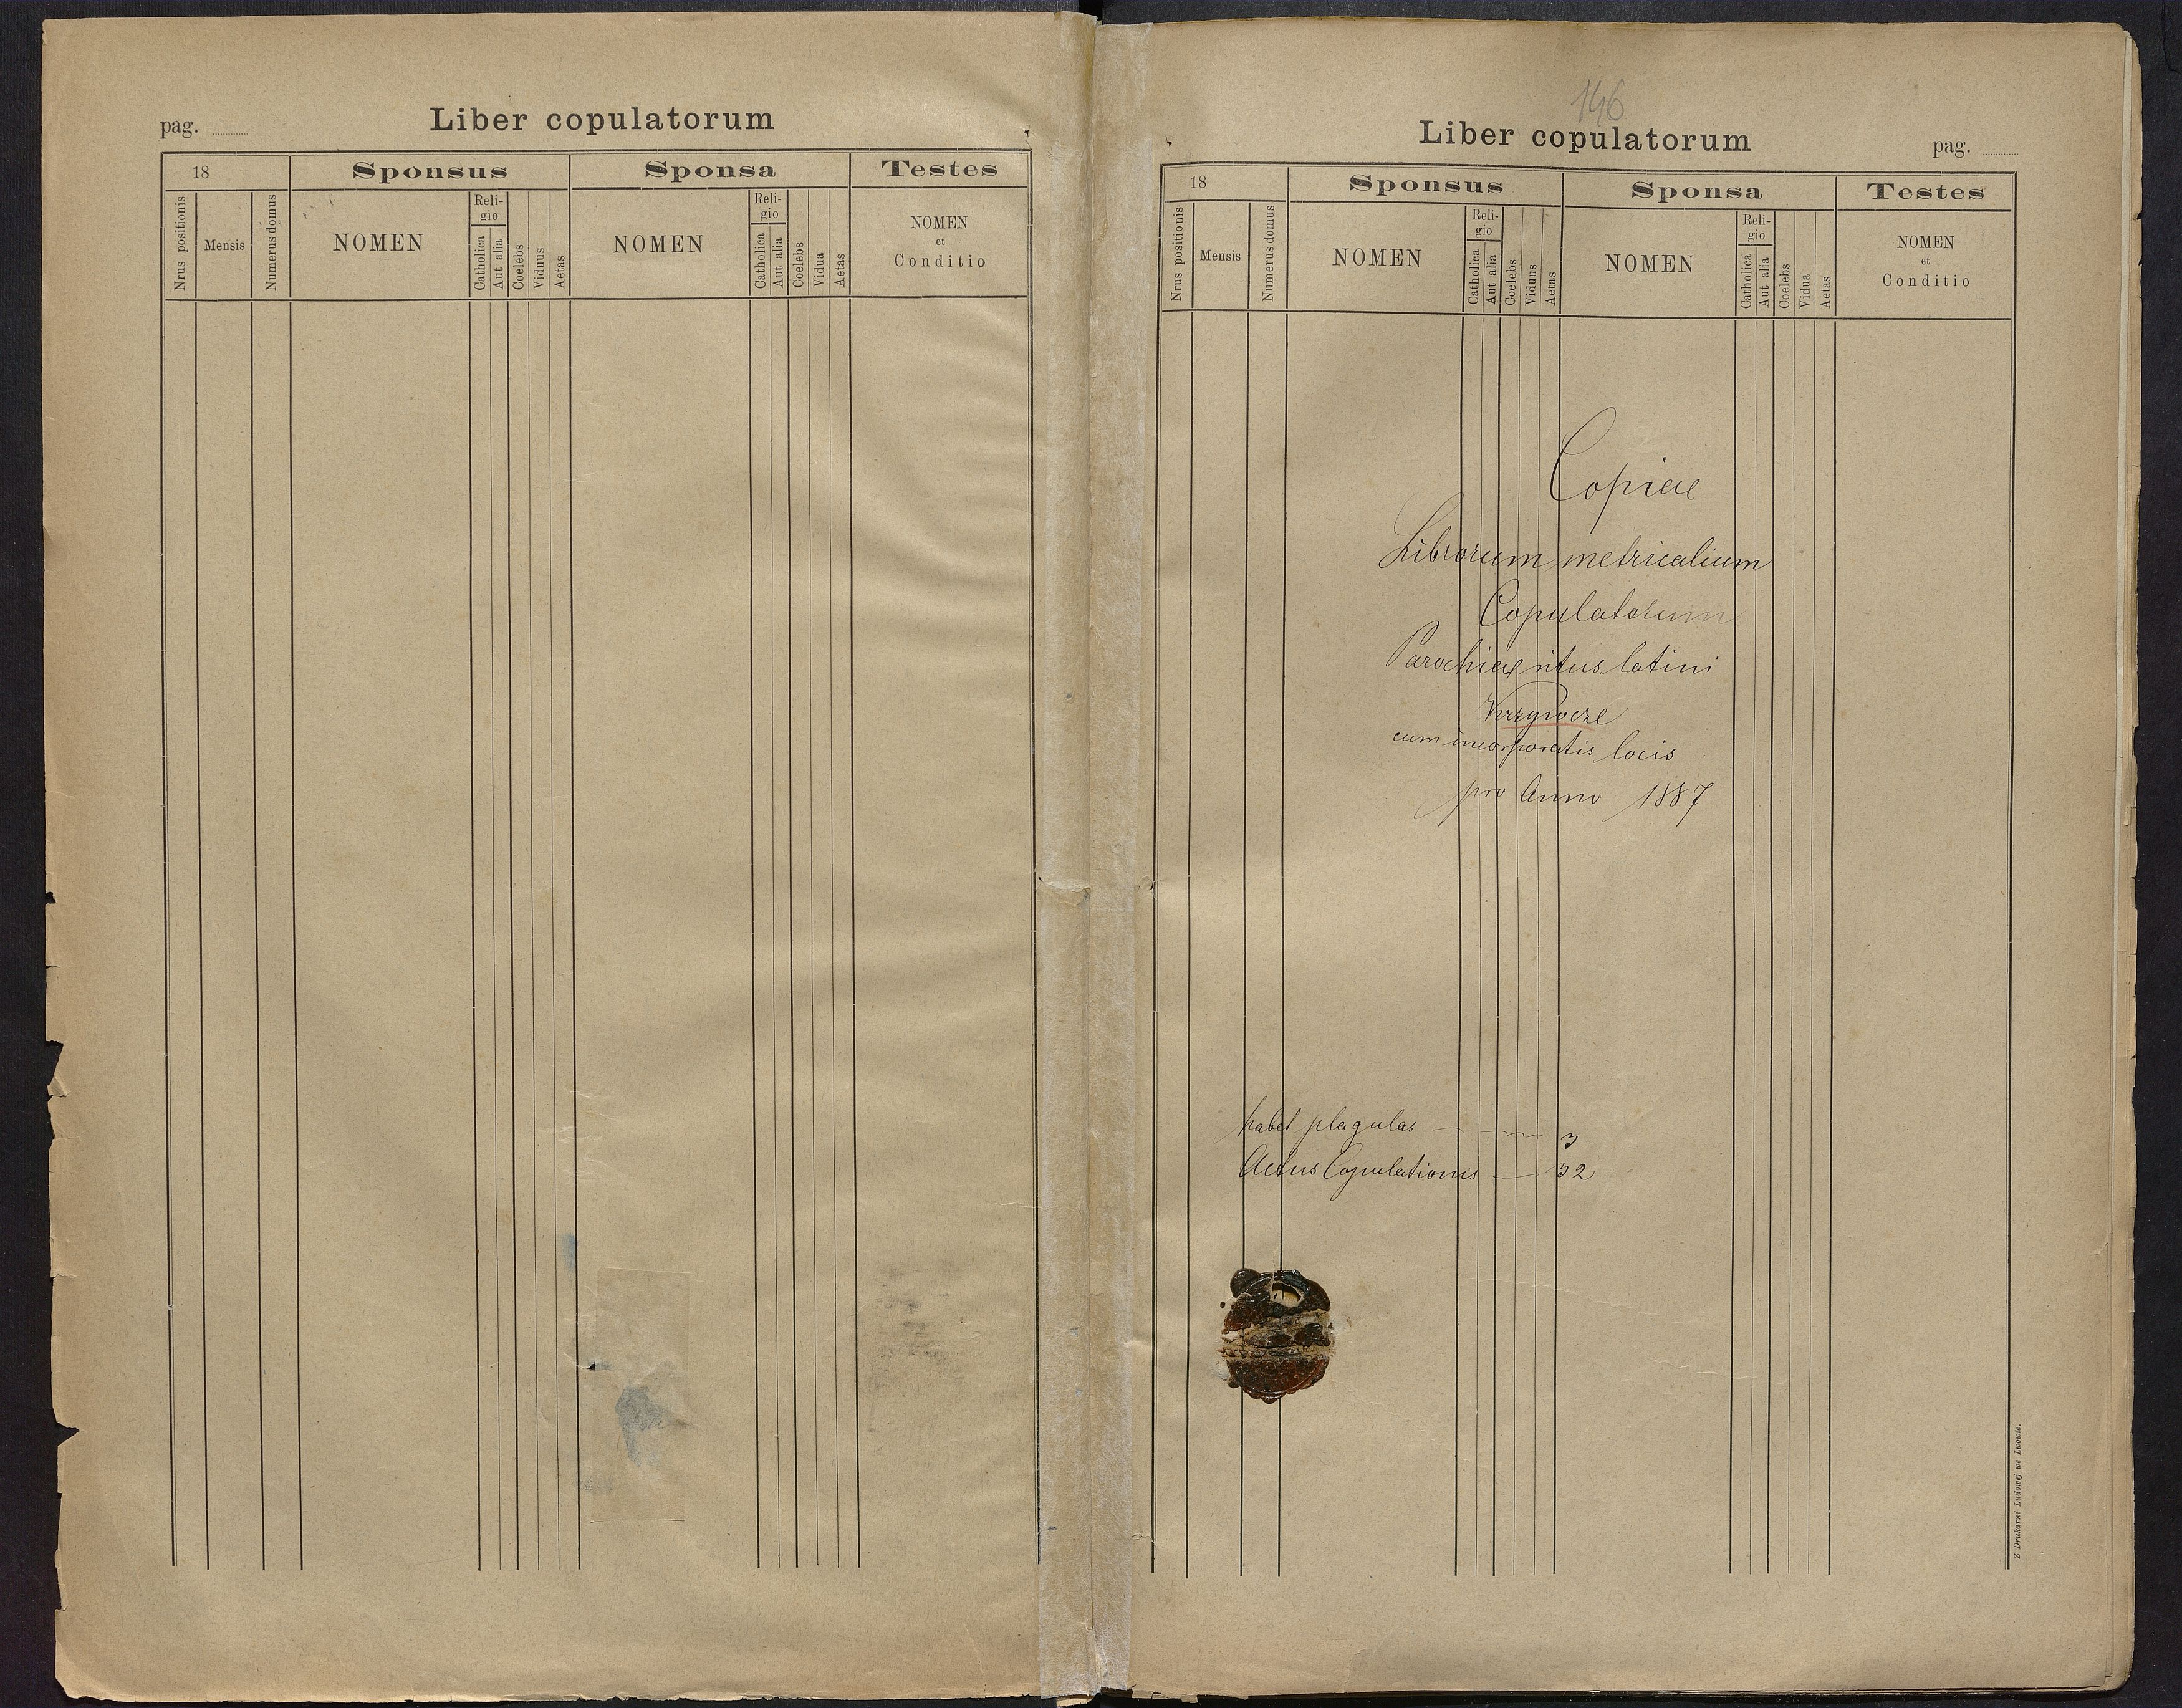 pag.
Liber copulatorum
18
Sponsus
Sponsa
Testes
Nrus positionis
Mensis
Numerus domus
NOMEN
Reli-
gio
Catholica
Aut alia
Coelebs
Viduus
Aetas
NOMEN
Reli-
gio
Catholica
Aut alia
Coelebs
Vidua
Aetas
NOMEN
et
Conditio
146
Liber copulatorum
pag.
18
Sponsus
Sponsa
Testes
Nrus positionis
Mensis
Numerus domus
NOMEN
Reli-
gio
Catholica
Aut alia
Coelebs
Viduus
Aetas
NOMEN
Reli-
gio
Catholica
Aut alia
Coelebs
Vidua
Aetas
NOMEN
et
Conditio
Copiae
Librorum metricalium
Copulatorum
Parochiae ritus latini
cum incorporatis locis
pro Anno 1887
habet plagulas — 3
Actus Copulationis — 32
Z Drukarni Ludowej we Lwowie.